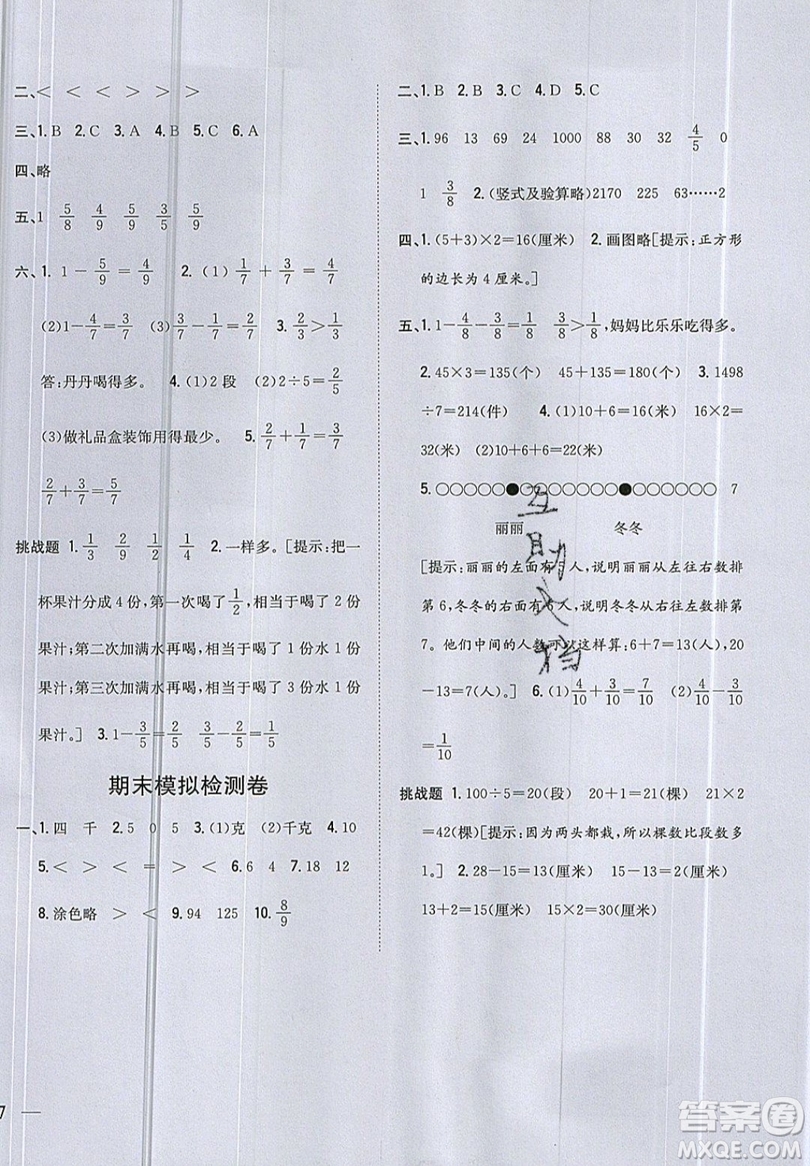 二、< < < > > >
三、1. B 2. C 3. A 4. B 5. C 6. A
四、略
五、1 5/8 4/9 3/5 5/9
六、1. 1－5/9＝4/9 2. (1) 1/7＋3/7＝4/7
(2)1－4/7＝3/7 (3)3/7－1/7＝2/7 3. 2/3＞1/3
答:丹丹喝得多。 4. (1)2段 (2)2÷5＝2/5
(3)做礼品盒装饰用得最少。 5. 2/7＋1/7＝3/7
2/7＋3/7＝5/7
挑战题 1. 1/3 2/9 1/2 1/4 2. 一样多。[提示:把一
杯果汁分成4份,第一次喝了1/2,相当于喝了2份
果汁;第二次加满水再喝,相当于喝了1份水1份
果汁;第三次加满水再喝,相当于喝了3份水1份
果汁。] 3. 1－3/5＝2/5 3/5－2/5＝1/5
期末模拟检测卷
一、1. 四 千 2. 5 0 5 3. (1)克 (2)千克 4. 10
5. < > < = > < 6. 6 4 7. 18 12
8. 涂色略 > < 9. 94 125 10. 8/9
二、1. B 2. B 3. C 4. D 5. C
三、1. 96 13 69 24 1000 88 30 32 4/5 0
1 3/8 2. (竖式及验算略)2170 225 63……2
四、1. (5＋3)×2＝16(厘米) 2. 画图略[提示:正方形
的边长为4厘米。]
五、1. 1－4/8－1/8＝3/8 3/8＞1/8,妈妈比乐乐吃得多。
2. 45×3＝135(个) 45＋135＝180(个) 3. 1498
÷7＝214(件) 4. (1)10＋6＝16(米) 16×2＝
32(米) (2)10＋6＋6＝22(米)
5. ○○○○○●○○○○○○○●○○○○○○ 7
丽丽 冬冬
[提示:丽丽的左面有5人,说明丽丽从左往右数排
第6,冬冬的右面有6人,说明冬冬从右往左数排第
7。他们中间的人数可以这样算:6＋7＝13(人),20
－13＝7(人)。] 6. (1)4/10＋3/10＝7/10 (2)4/10－3/10
＝1/10
挑战题 1. 100÷5＝20(段) 20＋1＝21(棵) 21×2
＝42(棵)[提示:因为两头都栽,所以棵数比段数多
1。] 2. 28－15＝13(厘米) 15－13＝2(厘米)
13＋2＝15(厘米) 15×2＝30(厘米)
互助文档
7
答案卷
MXQE.COM